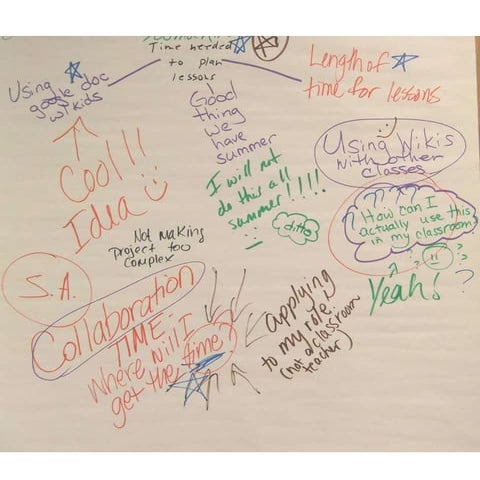 Time needed
to plan
lessons
Length of
time for lessons
Using
google doc
w/ kids
Good
thing
we
have
summer
Using Wikis
with other
classes
Cool!!
Idea
I will not
do this all
summer!!!!
ditto
How can I
actually use this
in my classroom
??
? ? ?
!!
?
Yeah!
Not making
project too
complex
S.A.
Collaboration
TIME:
Where will I
get the time?
applying
to my role
(not a classroom
teacher)